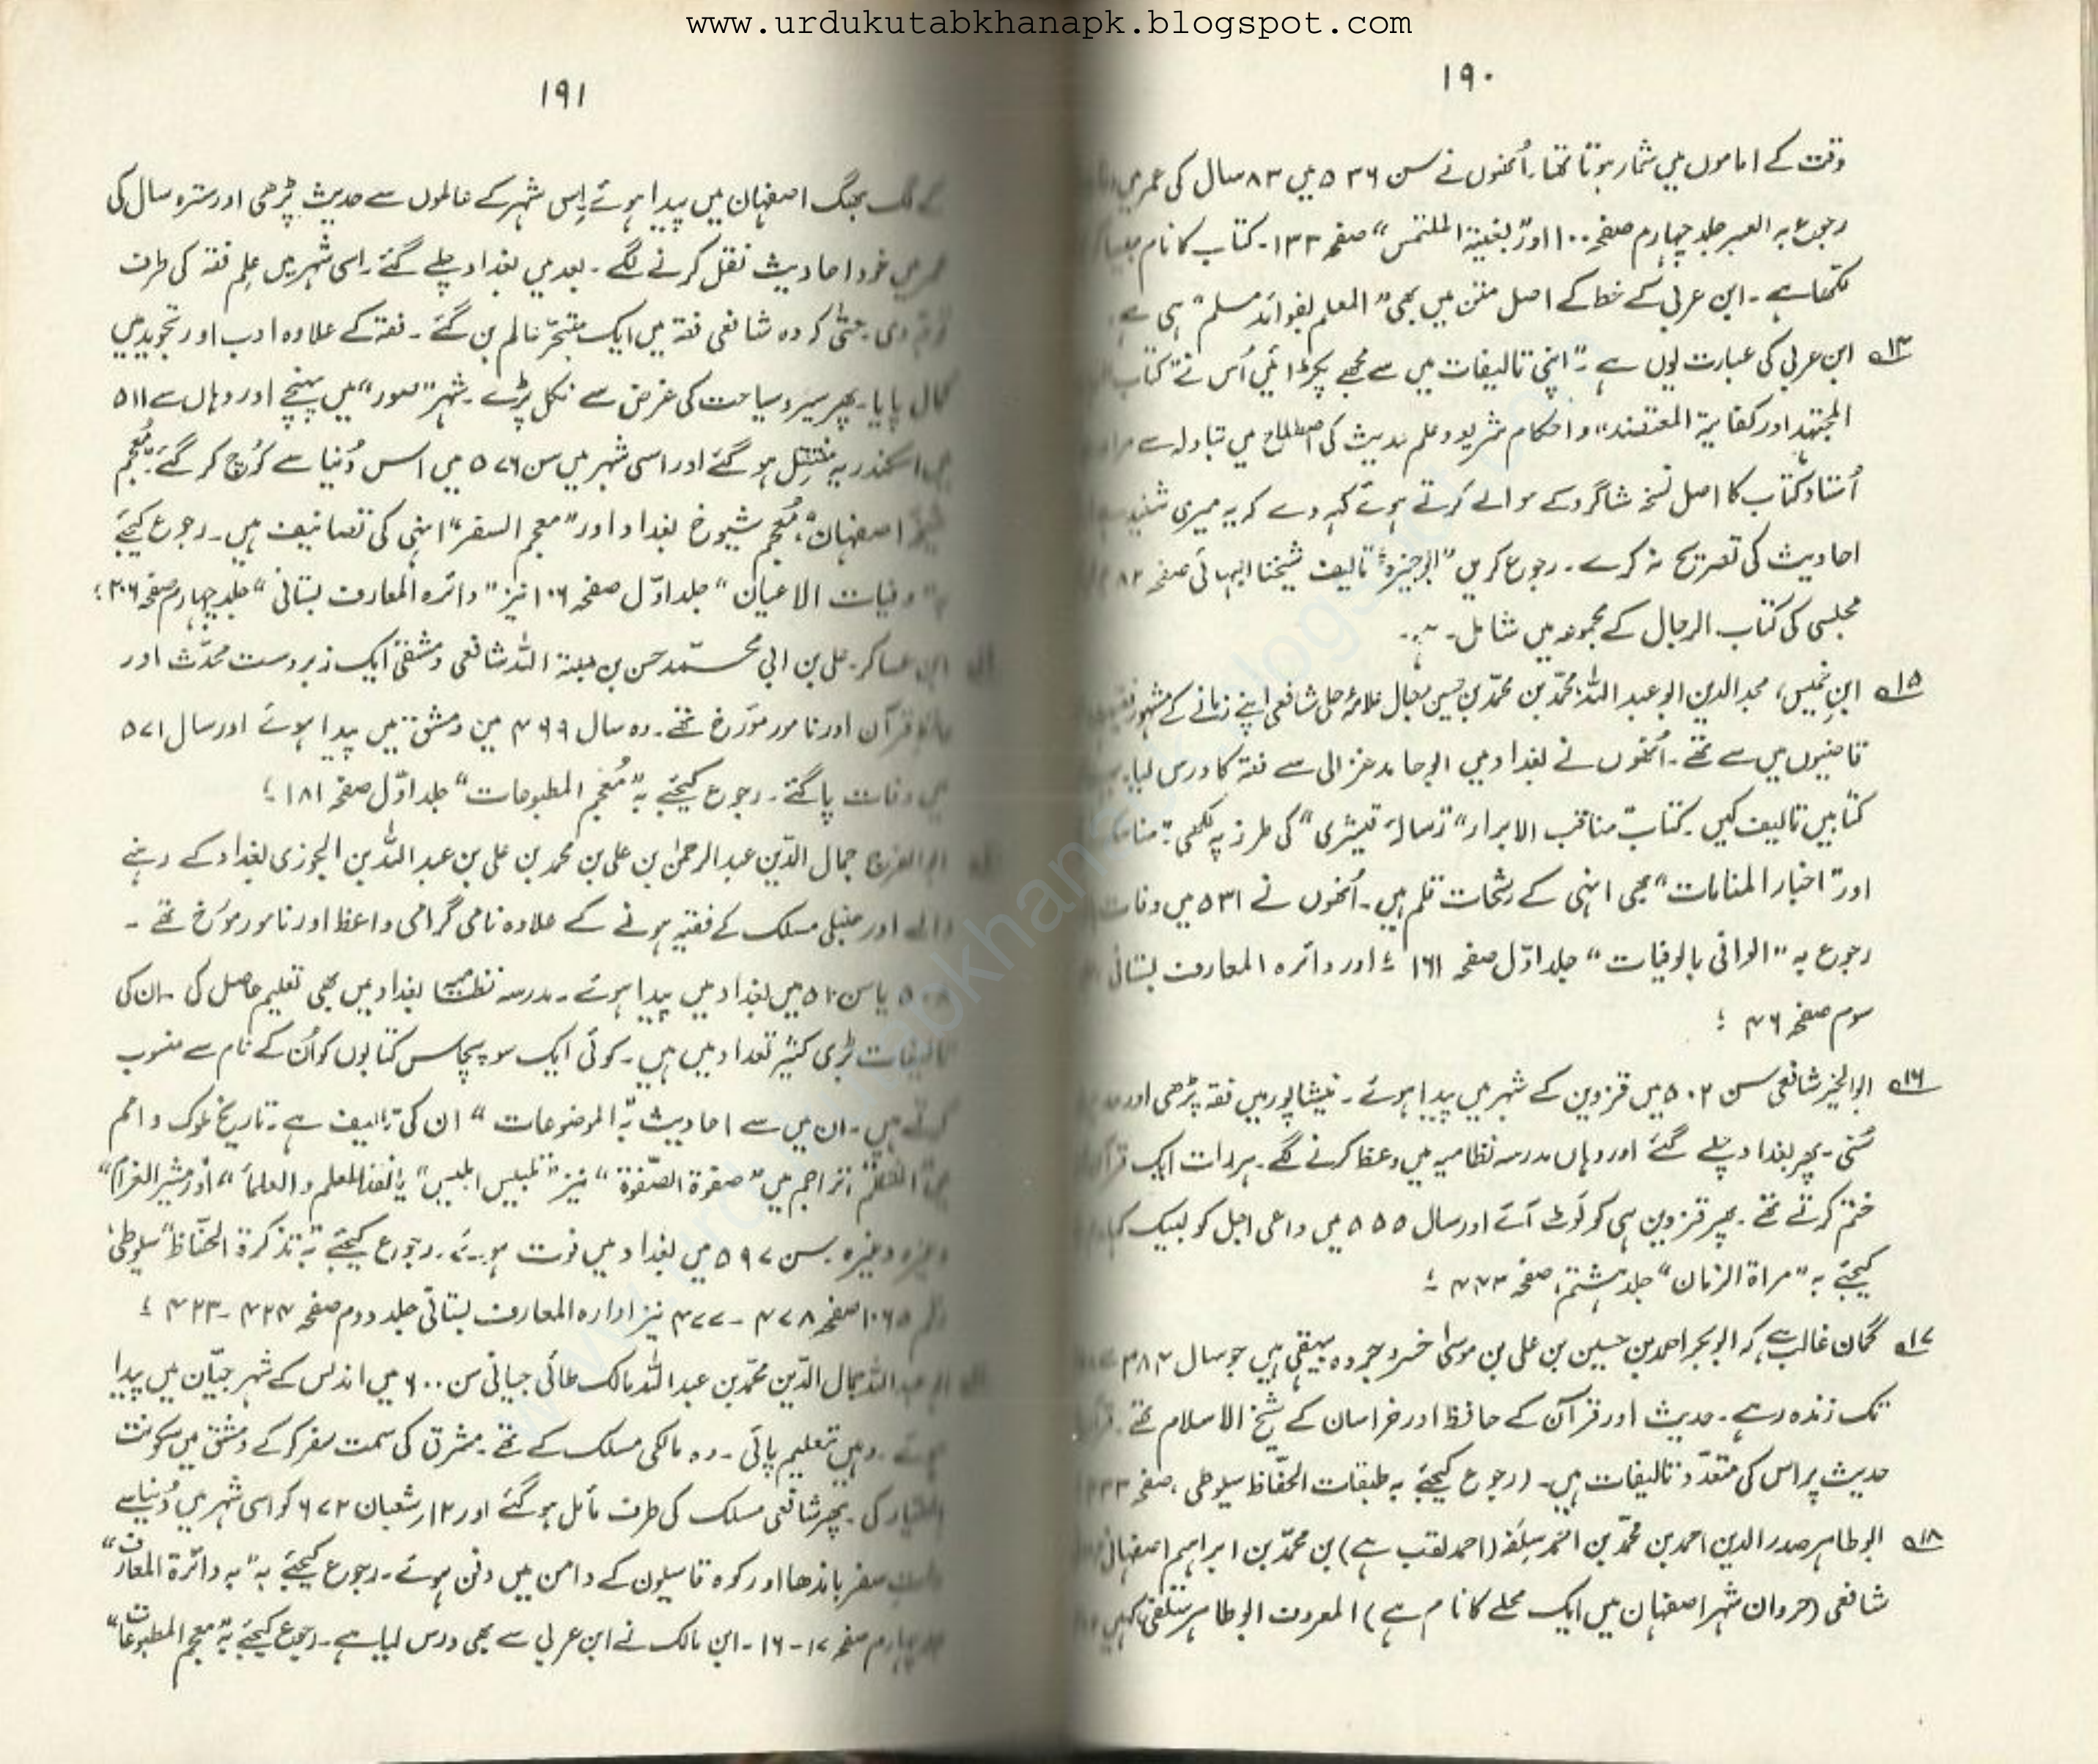 www.urdukutabkhanapk.blogspot.com
۱۹۰
وقت کے اماموں میں شمار ہوتا تھا۔ اُنھوں نے سن ۵۳۶ میں ۸۳ سال کی عمر میں
رجوع بہ العبر جلد چہارم صفحہ ۱۰۰ اور "بغیتہ الملتمس" صفحہ ۱۳۳۔ کتاب کا نام جیسا کہ
لکھا ہے۔ ابن عربی کے خط کے اصل متن میں بھی "المعلم بفوائد مسلم" ہی ہے۔
ابن عربی کی عبارت یوں ہے۔ "اپنی تالیفات میں سے مجھے پکڑائیں اُس نے کتاب
المجتہد اور کفایۃ المعتقد" و احکام شریعہ و علم حدیث کی اصطلاح میں تبادلہ سے مراد
اُستاد کتاب کا اصل نسخہ شاگرد کے حوالے کرتے ہوئے کہہ دے کہ یہ میری شنید
احادیث کی تصریح نہ کرے۔ رجوع کریں "الوجیزہ" تالیف شیخنا البہائی صفحہ ۸۲
مجلسی کی کتاب الرجال کے مجموعہ میں شامل۔
۱۵ ابنِ خمیس، مجد الدین ابو عبد اللہ محمّد بن محمّد بن حسین شافعی اپنے زمانے کے مشہور
قاضیوں میں سے تھے۔ اُنھوں نے بغداد میں ابو حامد غزالی سے فقہ کا درس لیا۔
کتابیں تالیف کیں۔ کتاب مناقب الابرار "رسالۂ قیشری" کی طرز پہ لکھی۔
اور "اخبار المنامات" بھی انہی کے رشحات قلم ہیں۔ اُنھوں نے ۵۳۱ میں وفات
رجوع بہ "الوافی بالوفیات" جلد اوّل صفحہ ۱۶۱ ؛ اور دائرہ المعارف بستانی
سوم صفحہ ۴۶ ؛
۱۶ ابو الخیر شافعی سن ۵۰۲ میں قزوین کے شہر میں پیدا ہوئے۔ نیشاپور میں فقہ پڑھی اور
سُنی۔ پھر بغداد چلے گئے اور وہاں مدرسہ نظامیہ میں وعظ کرنے لگے۔ ہر رات ایک
ختم کرتے تھے۔ پھر قزوین ہی کو لَوٹ آئے اور سال ۵۵۵ میں داعی اجل کو لبیک کہا۔
کیجئے بہ "مراۃ الزمان" جلد ہشتم، صفحہ ۴۴۳ ؛
۱۷ گمان غالب ہے کہ ابو بکر احمد بن حسین بن علی بن موسیٰ خسرو جردہ بیہقی ہیں جو سال ۳۸۴ سے
تک زندہ رہے۔ حدیث اور قرآن کے حافظ اور خراسان کے شیخ الاسلام تھے۔
حدیث پر اس کی متعدّد تالیفات ہیں۔ (رجوع کیجئے بہ طبقات الحفّاظ سیوطی، صفحہ
۱۸ ابو طاہر صدر الدین احمد بن محمّد بن احمد سِلَفہ (احمد لقب ہے) بن محمّد بن ابراہیم اصفہانی
شافعی (حروان شہر اصفہان میں ایک محلے کا نام ہے) المعروف ابو طاہر سِلَفی کہیں
۱۹۱
کے لگ بھگ اصفہان میں پیدا ہوئے۔ اِس شہر کے عالموں سے حدیث پڑھی اور سترہ سال کی
عمر میں خود احادیث نقل کرنے لگے۔ بعد میں بغداد چلے گئے۔ اسی شہر میں عِلمِ فقہ کی طرف
توجّہ دی۔ حتّٰی کہ وہ شافعی فقہ میں ایک متبحّر عالم بن گئے۔ فقہ کے علاوہ ادب اور تجوید میں
کمال پایا۔ پھر سیر و سیاحت کی غرض سے نکل پڑے۔ شہر "صور" میں پہنچے اور وہاں سے ۵۱۱
میں اسکندریہ منتقل ہو گئے اور اسی شہر میں سن ۵۷۶ میں اس دُنیا سے کُوچ کر گئے۔ "مُعجم
شیوخ اصفہان"، "مُعجم شیوخ بغداد اور "معجم السفر" انہی کی تصانیف ہیں۔ رجوع کیجئے
بہ "وفیات الاعیان" جلد اوّل صفحہ ۱۰۶ نیز "دائرہ المعارف بستانی" جلد چہارم صفحہ ۳۰۶ ؛
ابن عساکر۔ علی بن ابی محمّد حسن بن ہبۃ اللہ شافعی دمشقی ایک زبردست محدّث اور
حافظِ قرآن اور نامور مورّخ تھے۔ وہ سال ۴۹۹ میں دمشق میں پیدا ہوئے اور سال ۵۷۱
میں وفات پا گئے۔ رجوع کیجئے بہ "مُعجم المطبوعات" جلد اوّل صفحہ ۱۸۱ ؛
ابو الفرج جمال الدّین عبد الرحمٰن بن علی بن محمد بن علی بن عبد اللہ بن الجوزی بغداد کے رہنے
والے اور حنبلی مسلک کے فقیہ ہونے کے علاوہ نامی گرامی واعظ اور نامور مورّخ تھے۔
۵۰۸ یا سن ۵۱۰ میں بغداد میں پیدا ہوئے۔ مدرسہ نظامیہ بغداد میں بھی تعلیم حاصل کی۔ ان کی
تالیفات بڑی کثیر تعداد میں ہیں۔ کوئی ایک سو پچاس کتابوں کو اُن کے نام سے منسوب
کرتے ہیں۔ ان میں سے احادیث پہ "الموضوعات" ان کی تالیف ہے۔ تاریخ ملوک و امم
میں "المنتظم" تراجم میں "صفوۃ الصّفوۃ" نیز "تلبیس ابلیس" و العلماء" اور "مثیر الغرام"
وغیرہ وغیرہ۔ سن ۵۹۷ میں بغداد میں فوت ہوئے۔ رجوع کیجئے بہ تذکرۃ الحفّاظ" سیوطی
۱۰۶۵ صفحہ ۴۷۸ - ۴۷۷ نیز ادارہ المعارف بستانی جلد دوم صفحہ ۴۲۴ - ۴۲۳ ؛
ابو عبد اللہ جمال الدّین محمّد بن عبد اللہ مالک طائی جیانی سن ۶۰۰ میں اندلس کے شہر جیّان میں پیدا
ہوئے۔ وہیں تعلیم پائی۔ وہ مالکی مسلک کے تھے۔ مشرق کی سمت سفر کر کے دمشق میں سکونت
اختیار کی۔ پھر شافعی مسلک کی طرف مائل ہو گئے اور ۱۲ر شعبان ۶۷۲ کو اسی شہر میں دُنیا سے
سفر باندھا اور کوہ قاسیون کے دامن میں دفن ہوئے۔ رجوع کیجئے بہ "بہ دائرۃ المعارف"
جلد چہارم صفحہ ۱۷ - ۱۶۔ ابن مالک نے ابن عربی سے بھی درس لیا ہے۔ رجوع کیجئے بہ "معجم المطبوعات"